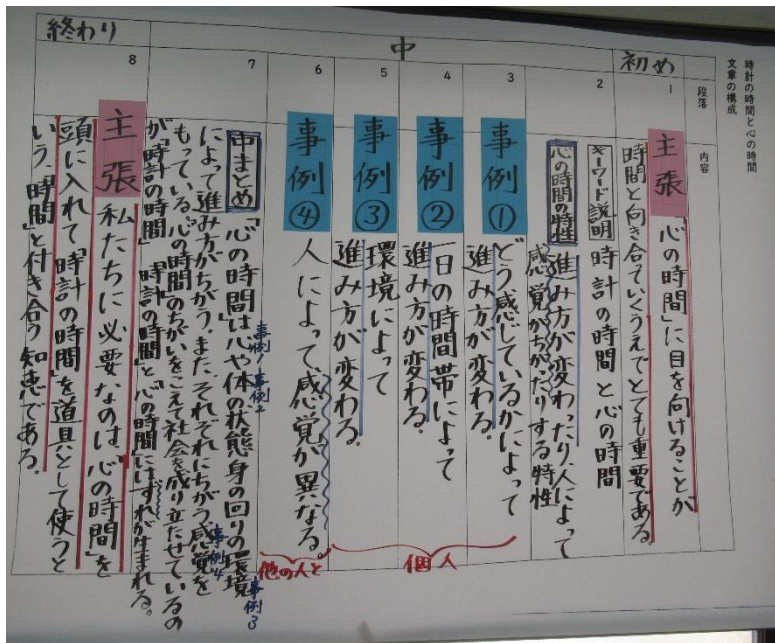 時計の時間と心の時間
文章の構成
段落
内容
初め
中
終わり
1
主張
「心の時間」に目を向けることが
時間と向き合っていくうえでとても重要である。
2
キーワード説明 時計の時間と心の時間
心の時間の特性 進み方が変わったり、人によって
感覚がちがったりする特性
3
事例①
どう感じているかによって
進み方が変わる。
4
事例②
一日の時間帯によって
進み方が変わる。
5
事例③
環境によって
進み方が変わる。
個人
6
事例④
人によって、感覚が異なる。
他の人と
7
中まとめ 「心の時間」は心や体の状態身の回りの環境
事例1 事例2
事例3
によって進み方がちがう。また、それぞれにちがう感覚を
事例4
もっている。「心の時間」のちがいをこえて社会を成り立たせているの
が「時計の時間」「時計の時間」と「心の時間」にはずれが生まれる。
8
主張 私たちに必要なのは、「心の時間」を
頭に入れて「時計の時間」を道具として使うと
いう、「時間」と付き合う知恵である。